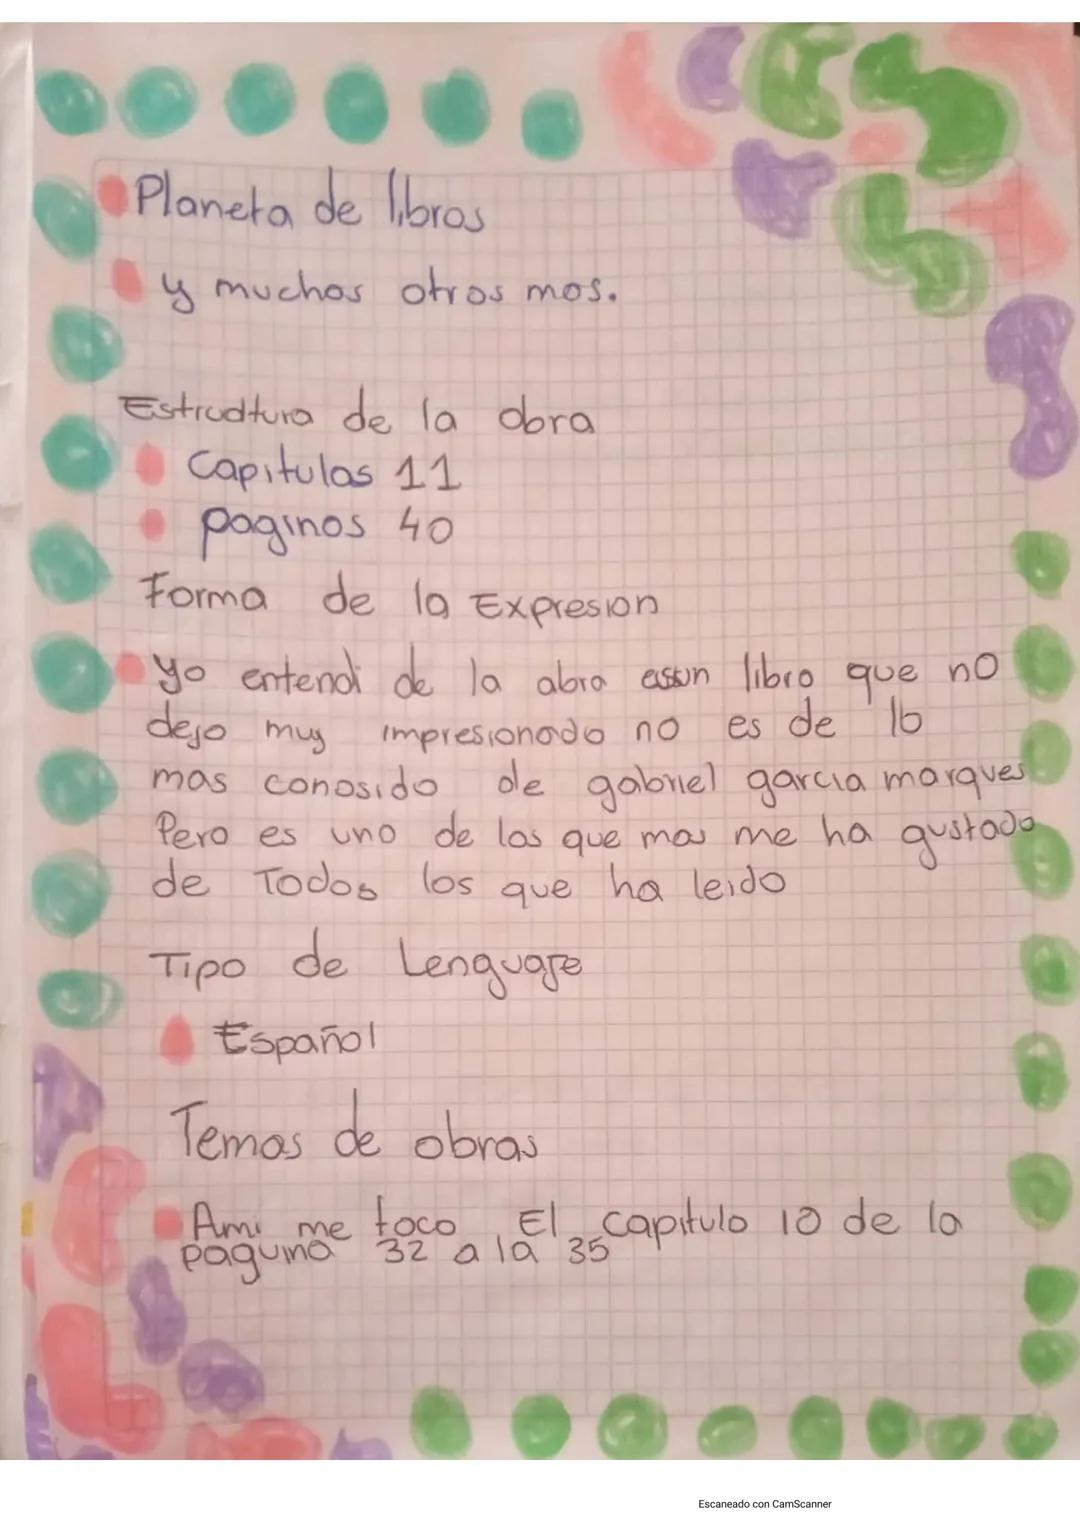 Planeta de libros
y muchos otros mas.
Estructura de la obra
Capitulos 11
paginas 40
Forma de la Expresion
yo entendi de la obra esun libro que no
dejo muy impresionado no es de lo
mas conosido de gabriel garcia marques
Pero es uno de los que mas me ha gustado
de Todos los que ha leido
Tipo de Lenguaje
Español
Temas de obras
Ami me toco El capitulo 10 de la
paguina 32 a la 35
Escaneado con CamScanner